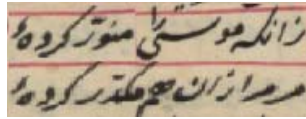 زانکه موسی را منور کرده‌ٔ
مر مرا زان هم مکدر کرده‌ٔ